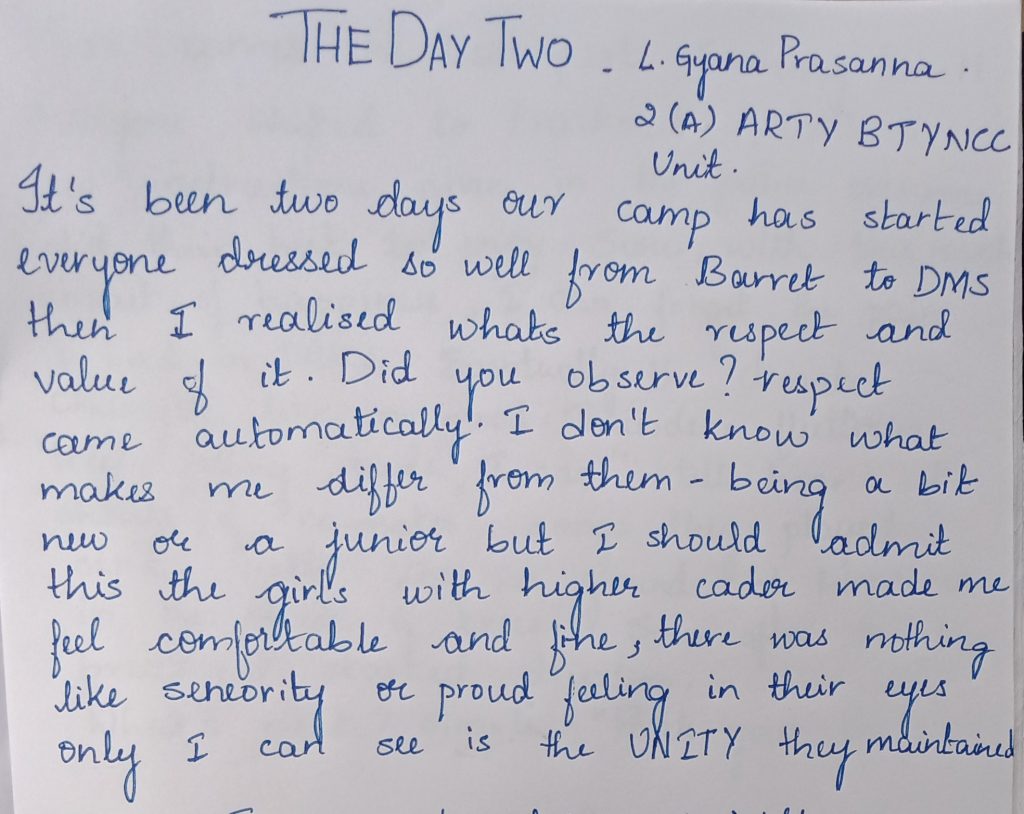 THE DAY TWO - L. Gyana Prasanna.
2(A) ARTY BTYNCC
Unit.
It's been two days our camp has started
everyone dressed so well from Barret to DMS
then I realised whats the respect and
value of it. Did you observe? respect
came automatically. I don't know what
makes me differ from them - being a bit
new or a junior but I should admit
this the girls with higher cader made me
feel comfortable and fine, there was nothing
like seneority or proud feeling in their eyes
only I can see is the UNITY they maintained